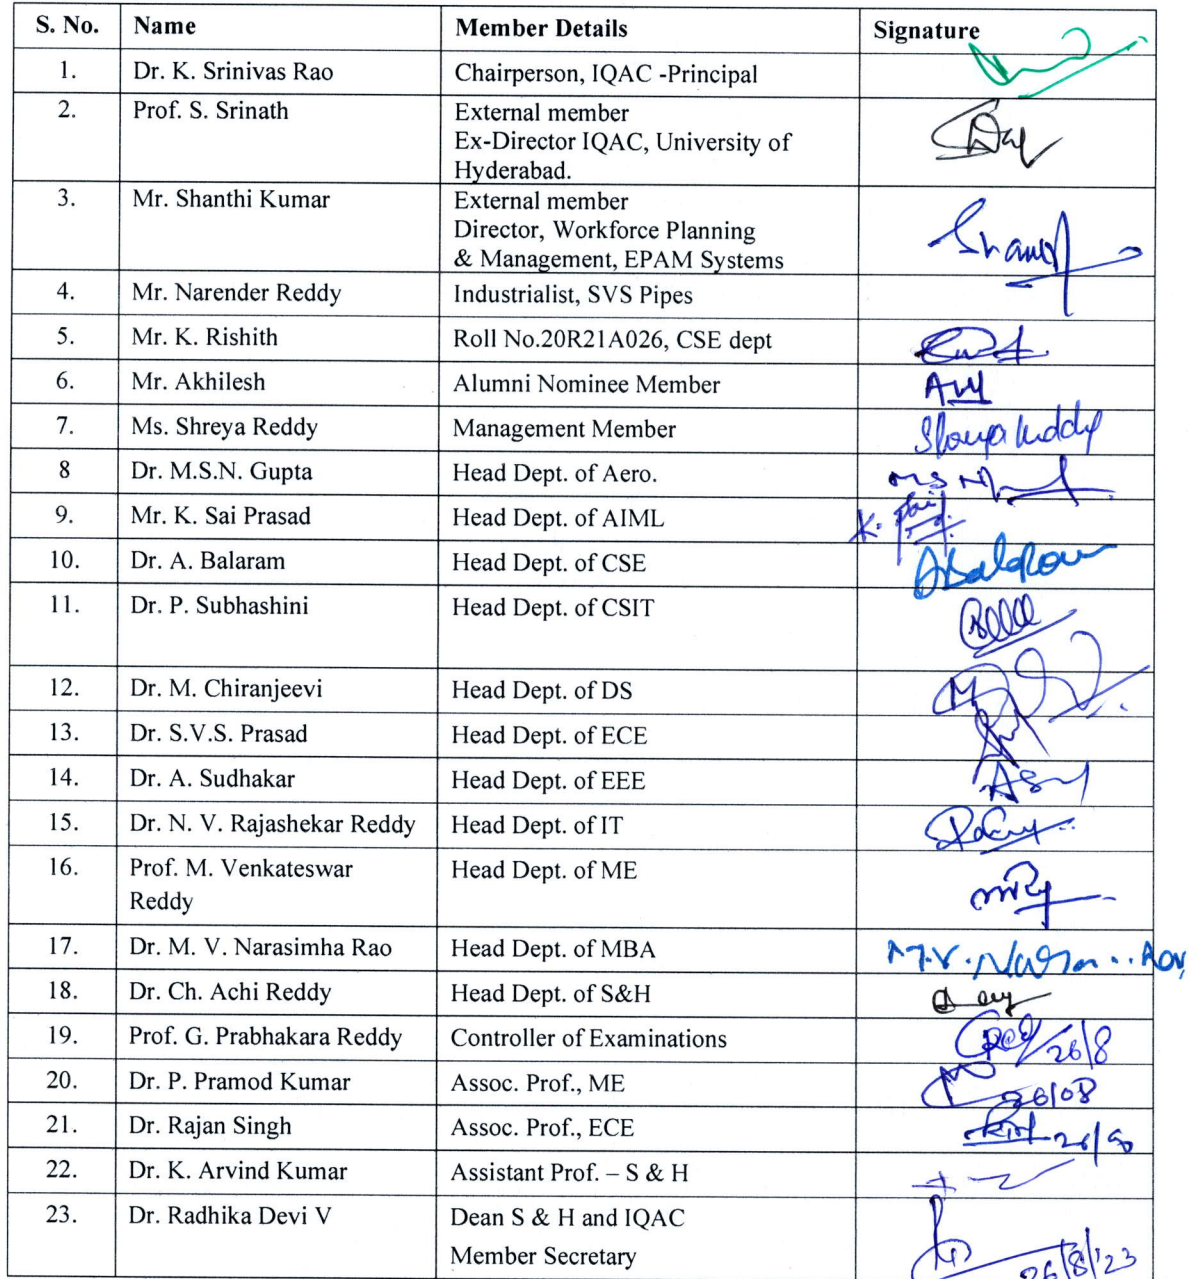 S. No. Name Member Details Signature
1. Dr. K. Srinivas Rao Chairperson, IQAC -Principal
2. Prof. S. Srinath External member
Ex-Director IQAC, University of
Hyderabad.
3. Mr. Shanthi Kumar External member
Director, Workforce Planning
& Management, EPAM Systems
4. Mr. Narender Reddy Industrialist, SVS Pipes
5. Mr. K. Rishith Roll No.20R21A026, CSE dept
6. Mr. Akhilesh Alumni Nominee Member
7. Ms. Shreya Reddy Management Member
8 Dr. M.S.N. Gupta Head Dept. of Aero.
9. Mr. K. Sai Prasad Head Dept. of AIML
10. Dr. A. Balaram Head Dept. of CSE
11. Dr. P. Subhashini Head Dept. of CSIT
12. Dr. M. Chiranjeevi Head Dept. of DS
13. Dr. S.V.S. Prasad Head Dept. of ECE
14. Dr. A. Sudhakar Head Dept. of EEE
15. Dr. N. V. Rajashekar Reddy Head Dept. of IT
16. Prof. M. Venkateswar Head Dept. of ME
Reddy
17. Dr. M. V. Narasimha Rao Head Dept. of MBA
18. Dr. Ch. Achi Reddy Head Dept. of S&H
19. Prof. G. Prabhakara Reddy Controller of Examinations 26/8
20. Dr. P. Pramod Kumar Assoc. Prof., ME 26/08
21. Dr. Rajan Singh Assoc. Prof., ECE
22. Dr. K. Arvind Kumar Assistant Prof. – S & H
23. Dr. Radhika Devi V Dean S & H and IQAC
Member Secretary 26/8/'23